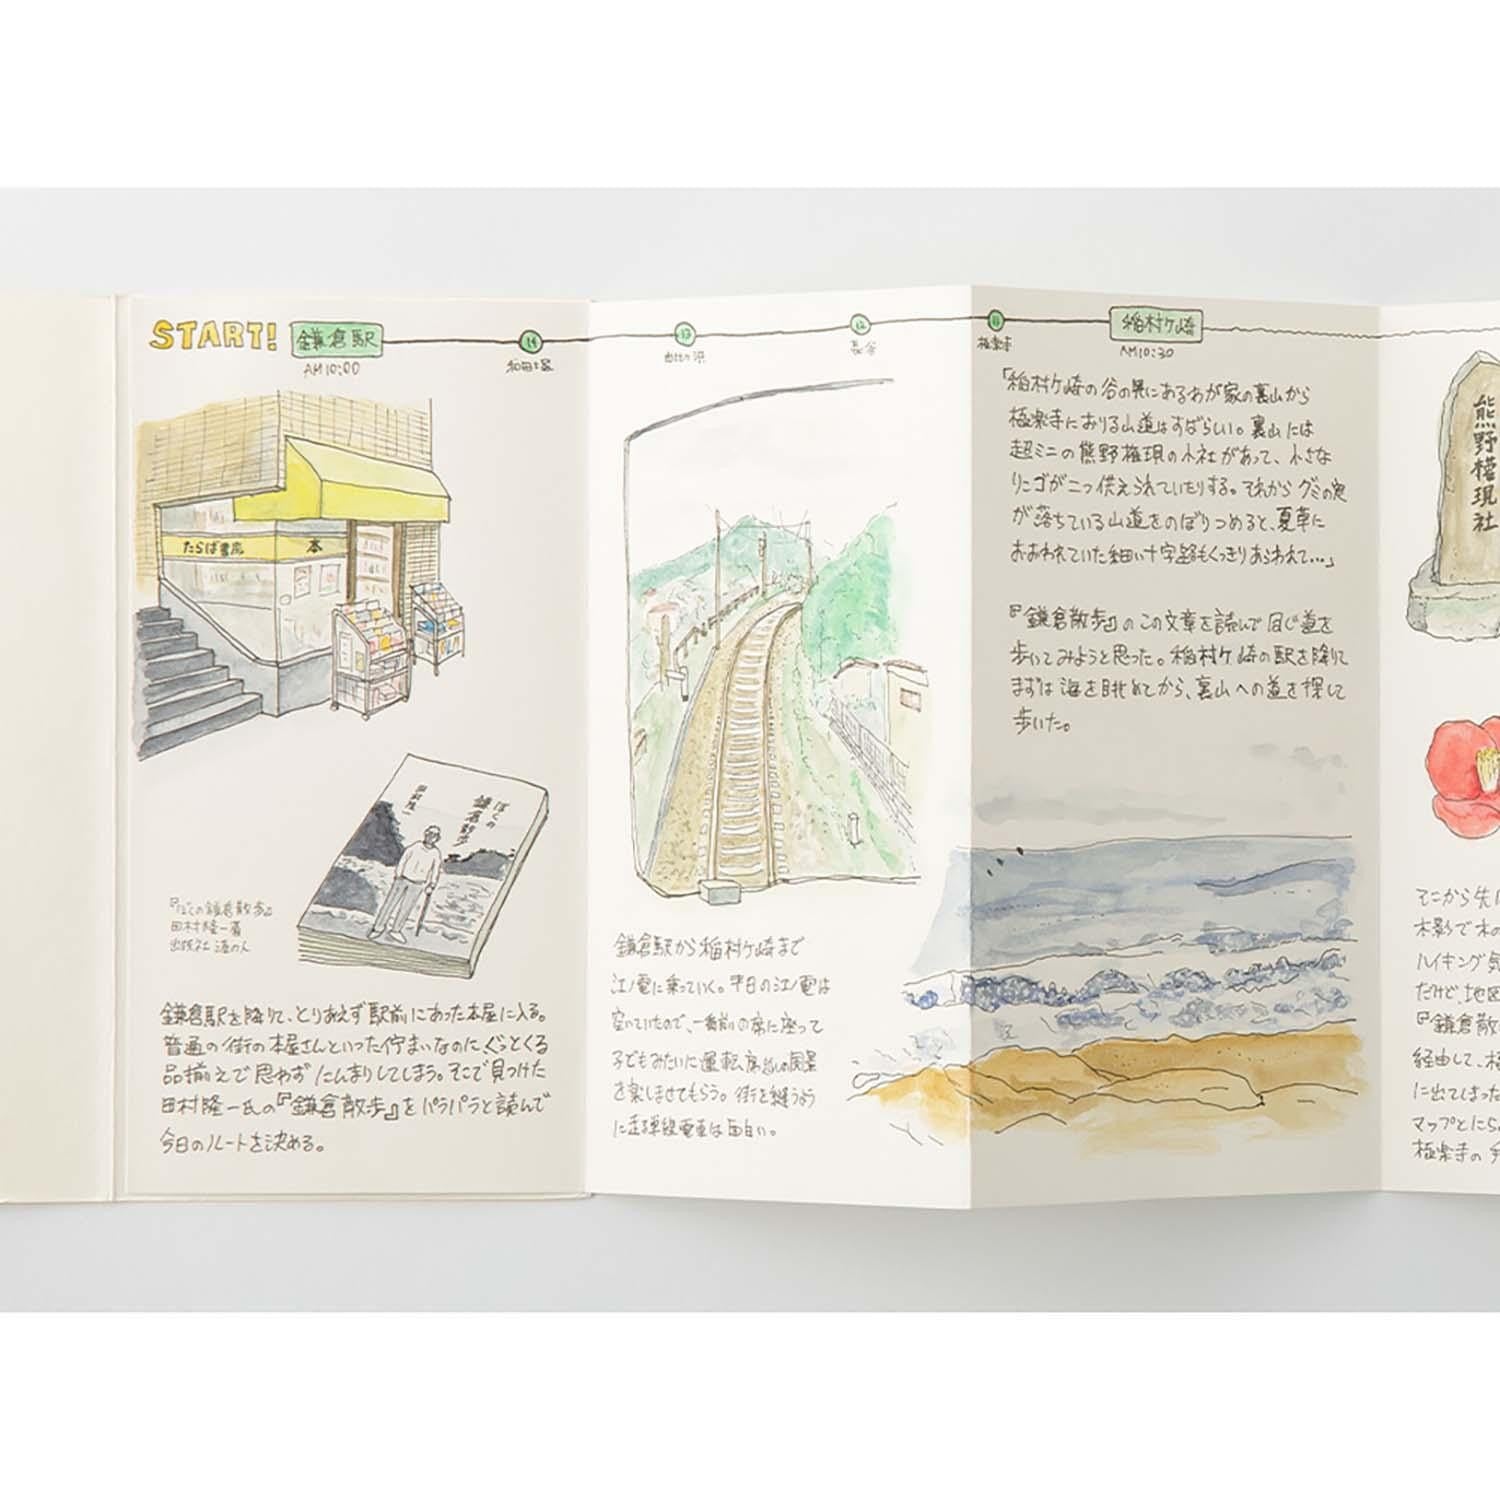 START!
鎌倉駅
AM10:00
14
和田塚
13
由比ヶ浜
12
長谷
11
極楽寺
稲村ヶ崎
AM10:30
たらば書房
本
ぼくの
鎌倉散歩
田村隆一
『ぼくの鎌倉散歩』
田村隆一著
出版社 港の人
鎌倉駅を降りて、とりあえず駅前にあった本屋に入る。
普通の街の本屋さんといった佇まいなのに、ぐっとくる
品揃えで思わずにんまりしてしまう。そこで見つけた
田村隆一氏の『鎌倉散歩』をパラパラと読んで
今日のルートを決める。
鎌倉駅から稲村ヶ崎まで
江ノ電に乗っていく。平日の江ノ電は
空いていたので、一番前の席に座って
子どもみたいに運転席越しの風景
を楽しませてもらう。街を縫うよう
に走る単線電車は面白い。
「稲村ヶ崎の谷の奥にあるわが家の裏山から
極楽寺におりる山道はすばらしい。裏山には
超ミニの熊野権現の小社があって、小さな
リンゴが二つ供えられていたりする。それからグミの実
が落ちている山道をのぼりつめると、夏草に
おおわれていた細い十字路もくっきりあらわれて…」
『鎌倉散歩』のこの文章を読んで同じ道を
歩いてみようと思った。稲村ヶ崎の駅を降りて
まずは海を眺めてから、裏山への道を探して
歩いた。
熊野権現社
そこから先は
木影で木の
ハイキング気
だけど、地図
『鎌倉散
経由して、極
に出てしまった
マップとにら
極楽寺の